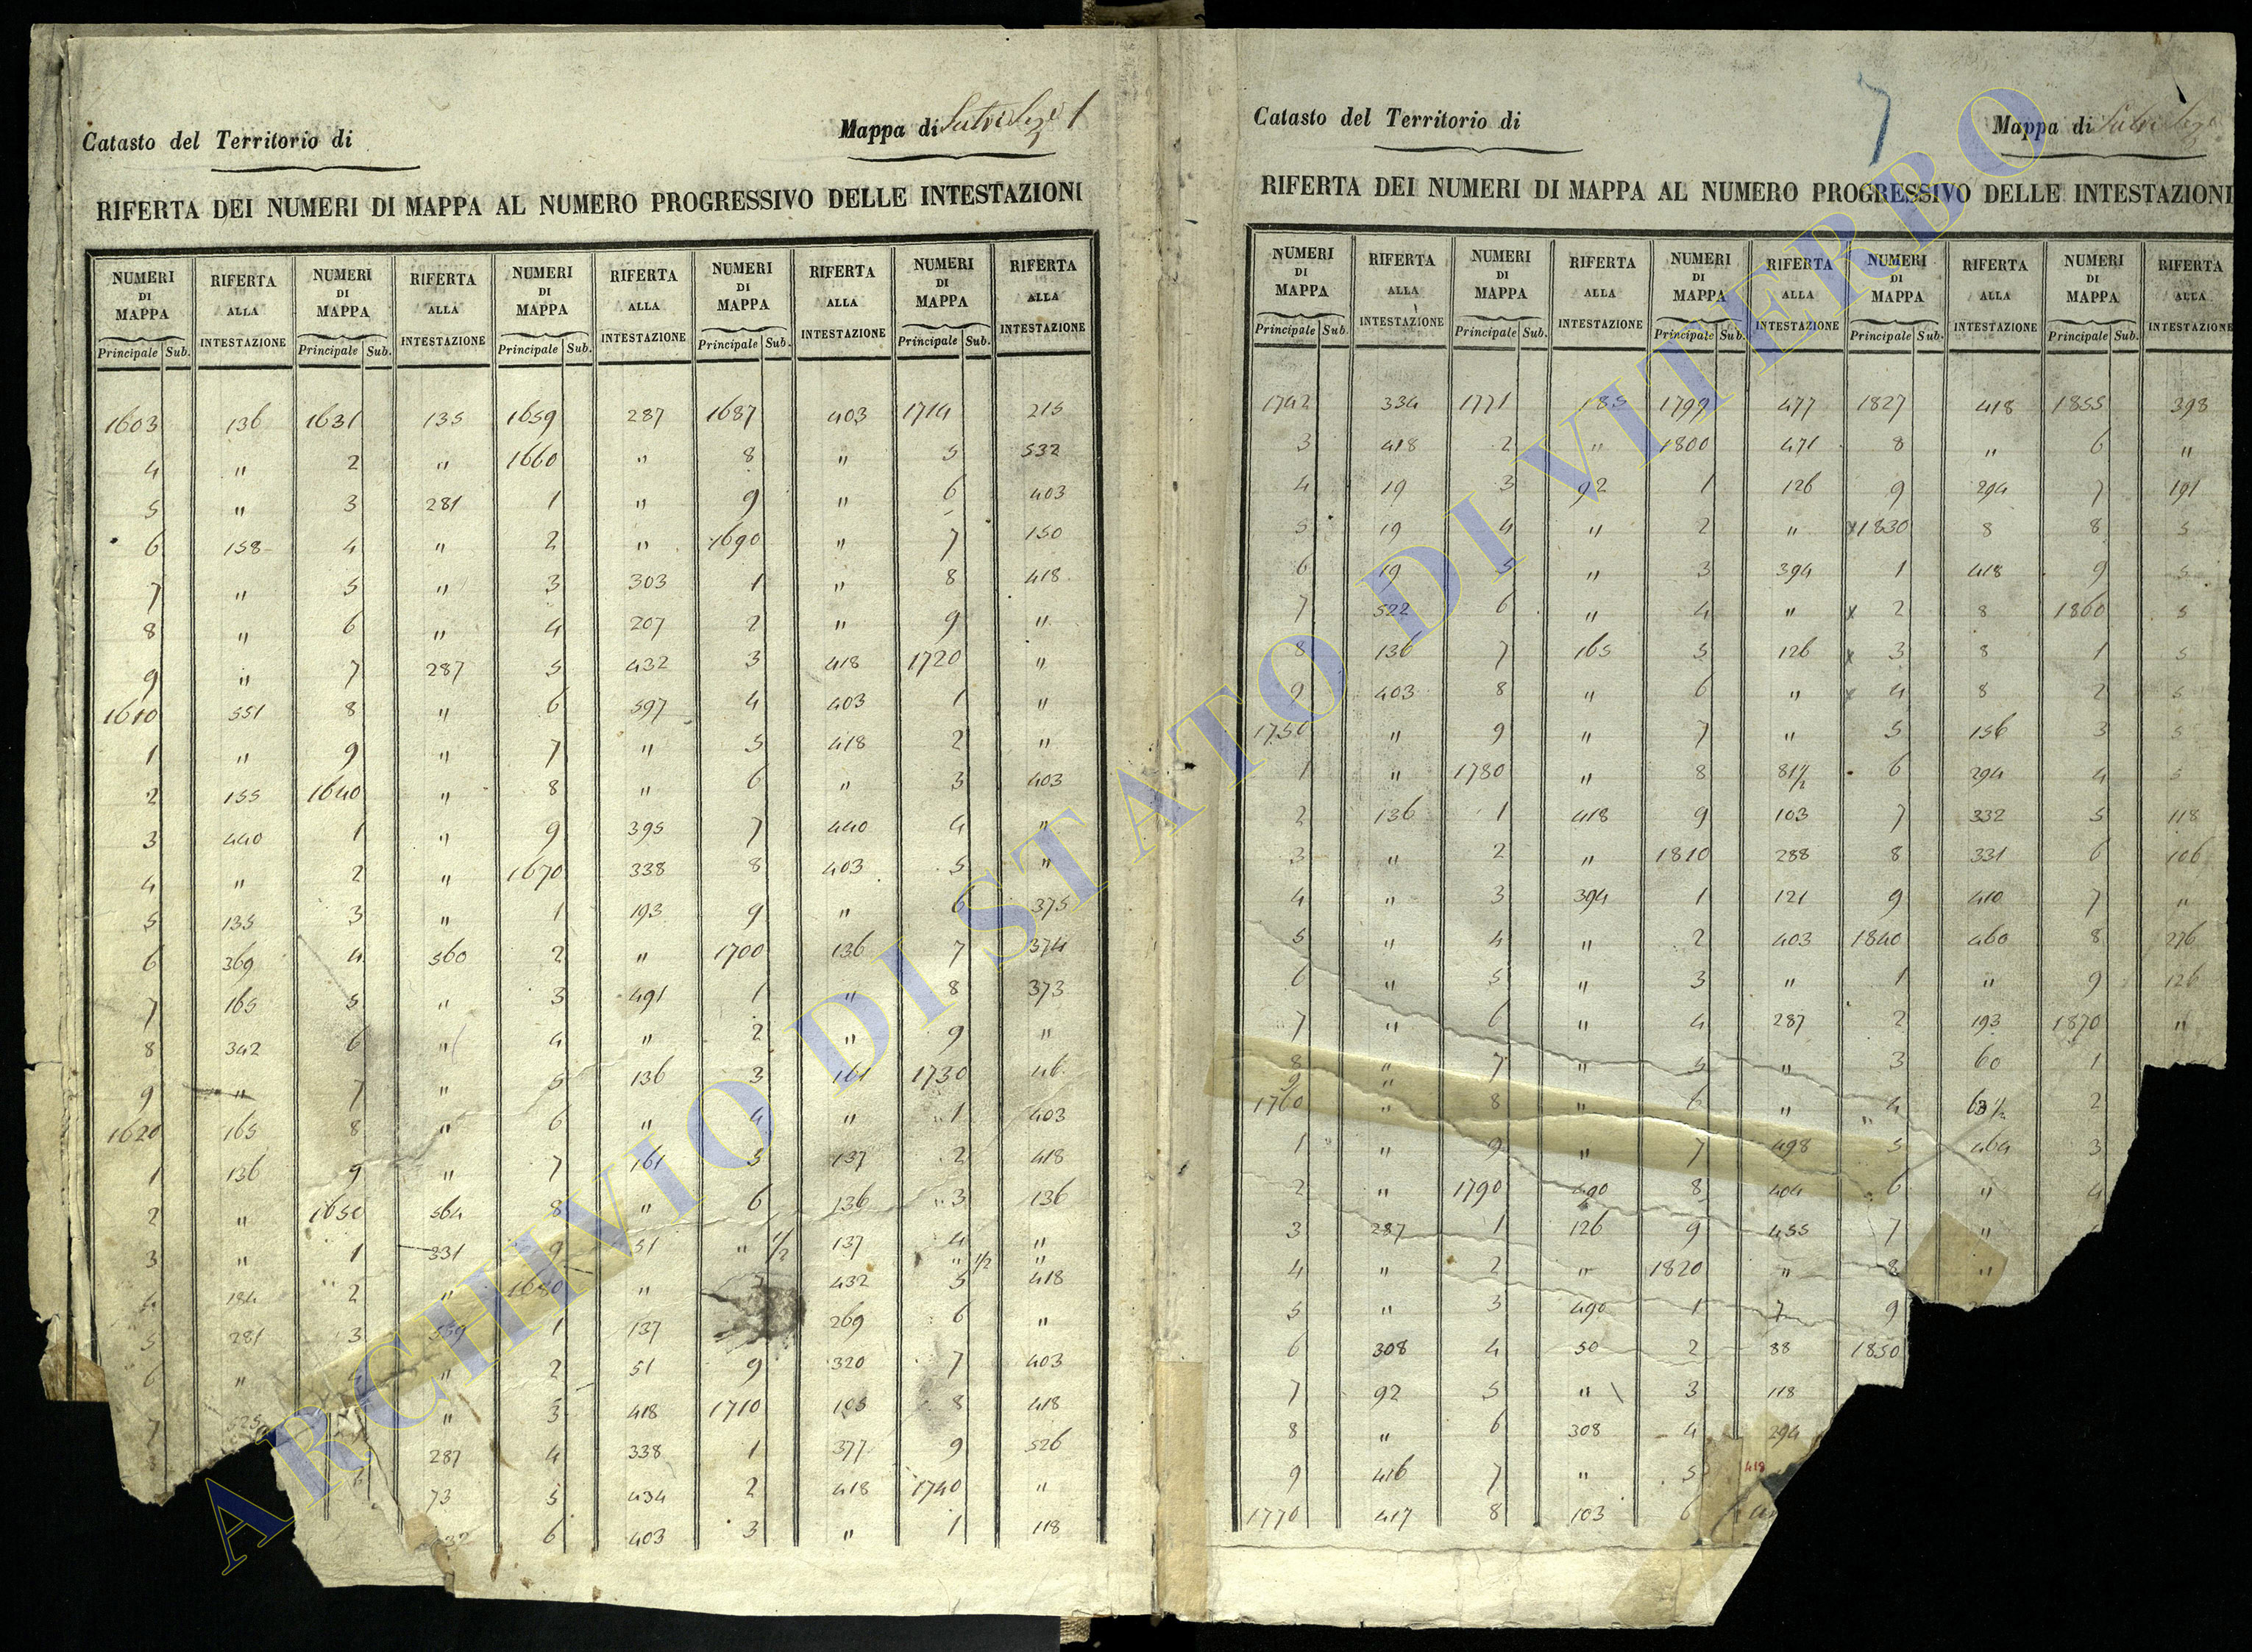 Catasto del Territorio di
Mappa di Sutri Sez.e 1
RIFERTA DEI NUMERI DI MAPPA AL NUMERO PROGRESSIVO DELLE INTESTAZIONI
NUMERI DI MAPPA Principale Sub. RIFERTA ALLA INTESTAZIONE NUMERI DI MAPPA Principale Sub. RIFERTA ALLA INTESTAZIONE NUMERI DI MAPPA Principale Sub. RIFERTA ALLA INTESTAZIONE NUMERI DI MAPPA Principale Sub. RIFERTA ALLA INTESTAZIONE NUMERI DI MAPPA Principale Sub. RIFERTA ALLA INTESTAZIONE
1603 136 1631 135 1659 287 1687 403 1714 215
4 " 2 " 1660 " 8 " 5 532
5 " 3 281 1 " 9 " 6 403
6 158 4 " 2 " 1690 " 7 150
7 " 5 " 3 303 1 " 8 418
8 " 6 " 4 207 2 " 9 "
9 " 7 287 5 432 3 418 1720 "
1610 551 8 " 6 597 4 403 1 "
1 " 9 " 7 " 5 418 2 "
2 155 1640 " 8 " 6 " 3 403
3 440 1 " 9 395 7 440 4 "
4 " 2 " 1670 338 8 403 5 "
5 135 3 " 1 193 9 " 6 375
6 369 4 560 2 " 1700 136 7 374
7 165 5 " 3 491 1 " 8 373
8 342 6 " 4 " 2 " 9 "
9 " 7 " 5 136 3 161 1730 46
1620 165 8 " 6 " 4 " 1 403
1 136 9 " 7 161 5 137 2 418
2 " 1650 564 8 " 6 136 3 136
3 " 1 331 9 51 " 1/2 137 4 "
" 1/2 "
4 184 2 " 1680 " 432 5 418
5 281 3 559 1 137 269 6 "
6 " 4 " 2 51 9 320 7 403
7 " 3 418 1710 105 8 418
287 4 338 1 377 9 526
73 5 434 2 418 1740 "
6 403 3 " 1 118
Catasto del Territorio di
7
Mappa di Sutri Sez.e
RIFERTA DEI NUMERI DI MAPPA AL NUMERO PROGRESSIVO DELLE INTESTAZIONI
NUMERI DI MAPPA Principale Sub. RIFERTA ALLA INTESTAZIONE NUMERI DI MAPPA Principale Sub. RIFERTA ALLA INTESTAZIONE NUMERI DI MAPPA Principale Sub. RIFERTA ALLA INTESTAZIONE NUMERI DI MAPPA Principale Sub. RIFERTA ALLA INTESTAZIONE NUMERI DI MAPPA Principale Sub. RIFERTA ALLA INTESTAZIONE
1742 334 1771 185 1799 477 1827 418 1855 398
3 418 2 " 1800 471 8 " 6 "
4 19 3 92 1 126 9 294 7 191
5 19 4 " 2 " x 1830 8 8 5
6 19 5 " 3 394 1 418 9 5
7 522 6 " 4 " x 2 8 1860 5
8 136 7 165 5 126 x 3 8 1 5
9 403 8 " 6 " x 4 8 2 5
1750 " 9 " 7 " 5 156 3 5
1 " 1780 " 8 81 1/2 6 294 4 5
2 136 1 418 9 103 7 332 5 118
3 " 2 " 1810 288 8 331 6 106
4 " 3 394 1 121 9 410 7 "
5 " 4 " 2 403 1840 460 8 276
6 " 5 " 3 " 1 " 9 126
7 " 6 " 4 287 2 193 1870 "
8 " 7 " 5 " 3 60 1
9 "
1760 " 8 " 6 " 4 63 1/2 2
1 " 9 " 7 498 5 464 3
2 " 1790 490 8 404 6 " 4
3 287 1 126 9 455 7 "
4 " 2 " 1820 " 8 "
5 " 3 490 1 7 9
6 308 4 50 2 88 1850
7 92 5 " 3 118
8 " 6 308 4 294
9 416 7 " 5 418
1770 417 8 103 6
ARCHIVIO DI STATO DI VITERBO